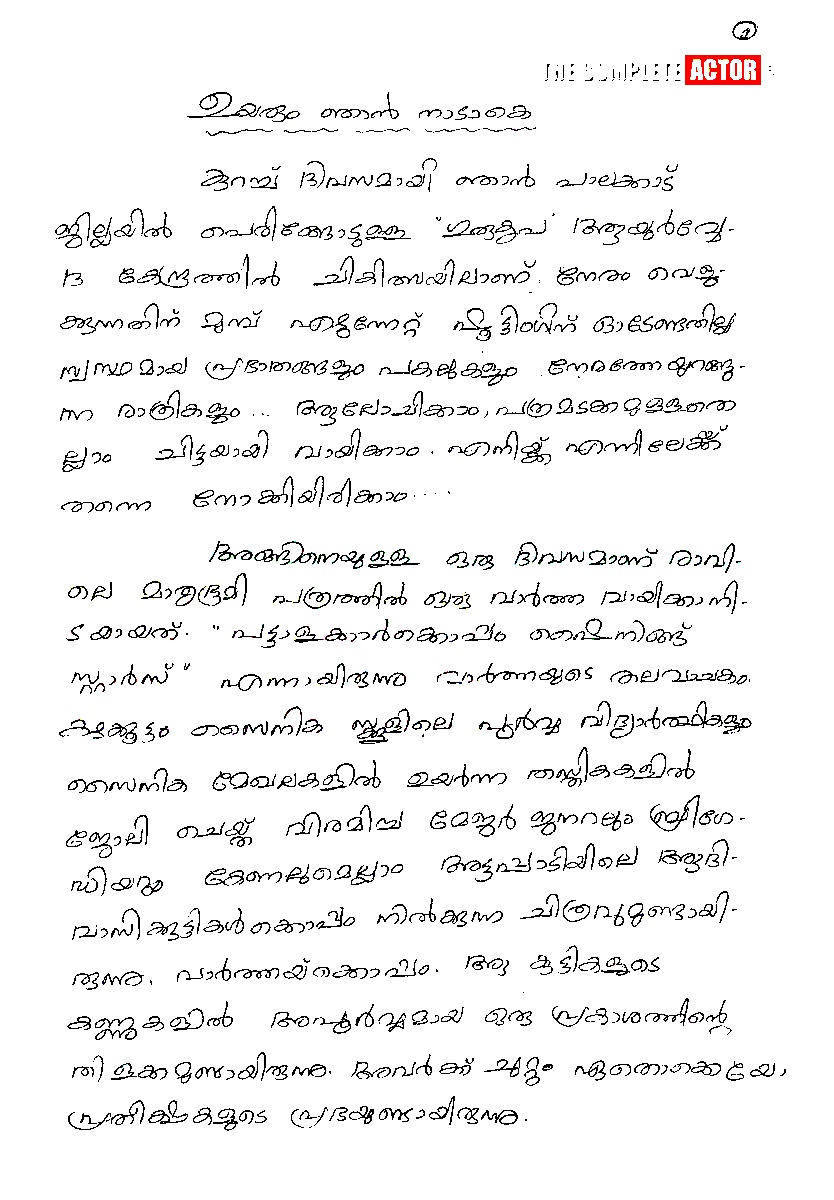 1
THE COMPLETE ACTOR
ഉയരും ഞാൻ നാടാകെ
കുറച്ച് ദിവസമായി ഞാൻ പാലക്കാട്
ജില്ലയിൽ പെരിങ്ങോട്ടുള്ള 'ഗുരുകൃപ' ആയുർവ്വേ-
ദ കേന്ദ്രത്തിൽ ചികിത്സയിലാണ്. നേരം വെളു-
ക്കുന്നതിന് മുമ്പ് എഴുന്നേറ്റ് ഷൂട്ടിംഗിന് ഓടേണ്ടതില്ല
സ്വസ്ഥമായ പ്രഭാതങ്ങളും പകലുകളും നേരത്തേയുറങ്ങു-
ന്ന രാത്രികളും ... ആലോചിക്കാം, പത്രമടക്കമുള്ളതെ
ല്ലാം ചിട്ടയായി വായിക്കാം. എനിയ്ക്ക് എന്നിലേക്ക്
തന്നെ നോക്കിയിരിക്കാം....
അങ്ങിനെയുള്ള ഒരു ദിവസമാണ് രാവി-
ലെ മാതൃഭൂമി പത്രത്തിൽ ഒരു വാർത്ത വായിക്കാനി-
ടയായത്. "പട്ടാളക്കാർക്കൊപ്പം ഷൈനിങ്ങ്
സ്റ്റാർസ്" എന്നായിരുന്നു വാർത്തയുടെ തലവാചകം.
കഴക്കൂട്ടം സൈനിക സ്കൂളിലെ പൂർവ്വ വിദ്യാർത്ഥികളും
സൈനിക മേഖലകളിൽ ഉയർന്ന തസ്തികകളിൽ
ജോലി ചെയ്ത് വിരമിച്ച മേജർ ജനറലും ബ്രിഗേ-
ഡിയറും കേണലുമെല്ലാം അട്ടപ്പാടിയിലെ ആദി-
വാസികുട്ടികൾക്കൊപ്പം നിൽക്കുന്ന ചിത്രവുമുണ്ടായി-
രുന്നു, വാർത്തയ്ക്കൊപ്പം. ആ കുട്ടികളുടെ
കണ്ണുകളിൽ അപൂർവ്വമായ ഒരു പ്രകാശത്തിന്റെ
തിളക്കമുണ്ടായിരുന്നു. അവർക്ക് ചുറ്റും ഏതൊക്കെയോ
പ്രതീക്ഷകളുടെ പ്രഭയുണ്ടായിരുന്നു.